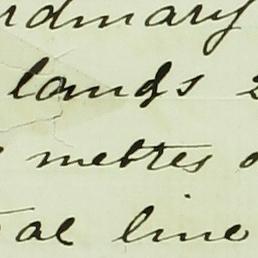 rdinary
lands 2
metres
al line